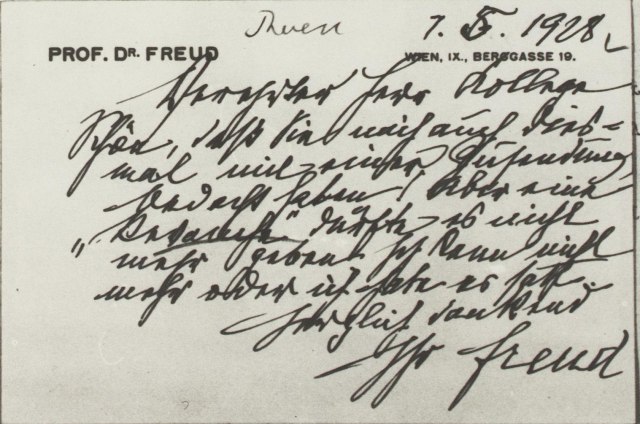 7. X. 1928
PROF. DR. FREUD
WIEN, IX., BERGGASSE 19.
Verehrter Herr Kollege
Schön, daß Sie mich auch dies=
mal mit einer Zusendung
bedacht haben! Aber eine
„Revanche“ dürfte es nicht
mehr geben. Ich kann nicht
mehr oder ich habe es satt.
Herzlich dankend
Ihr Freud